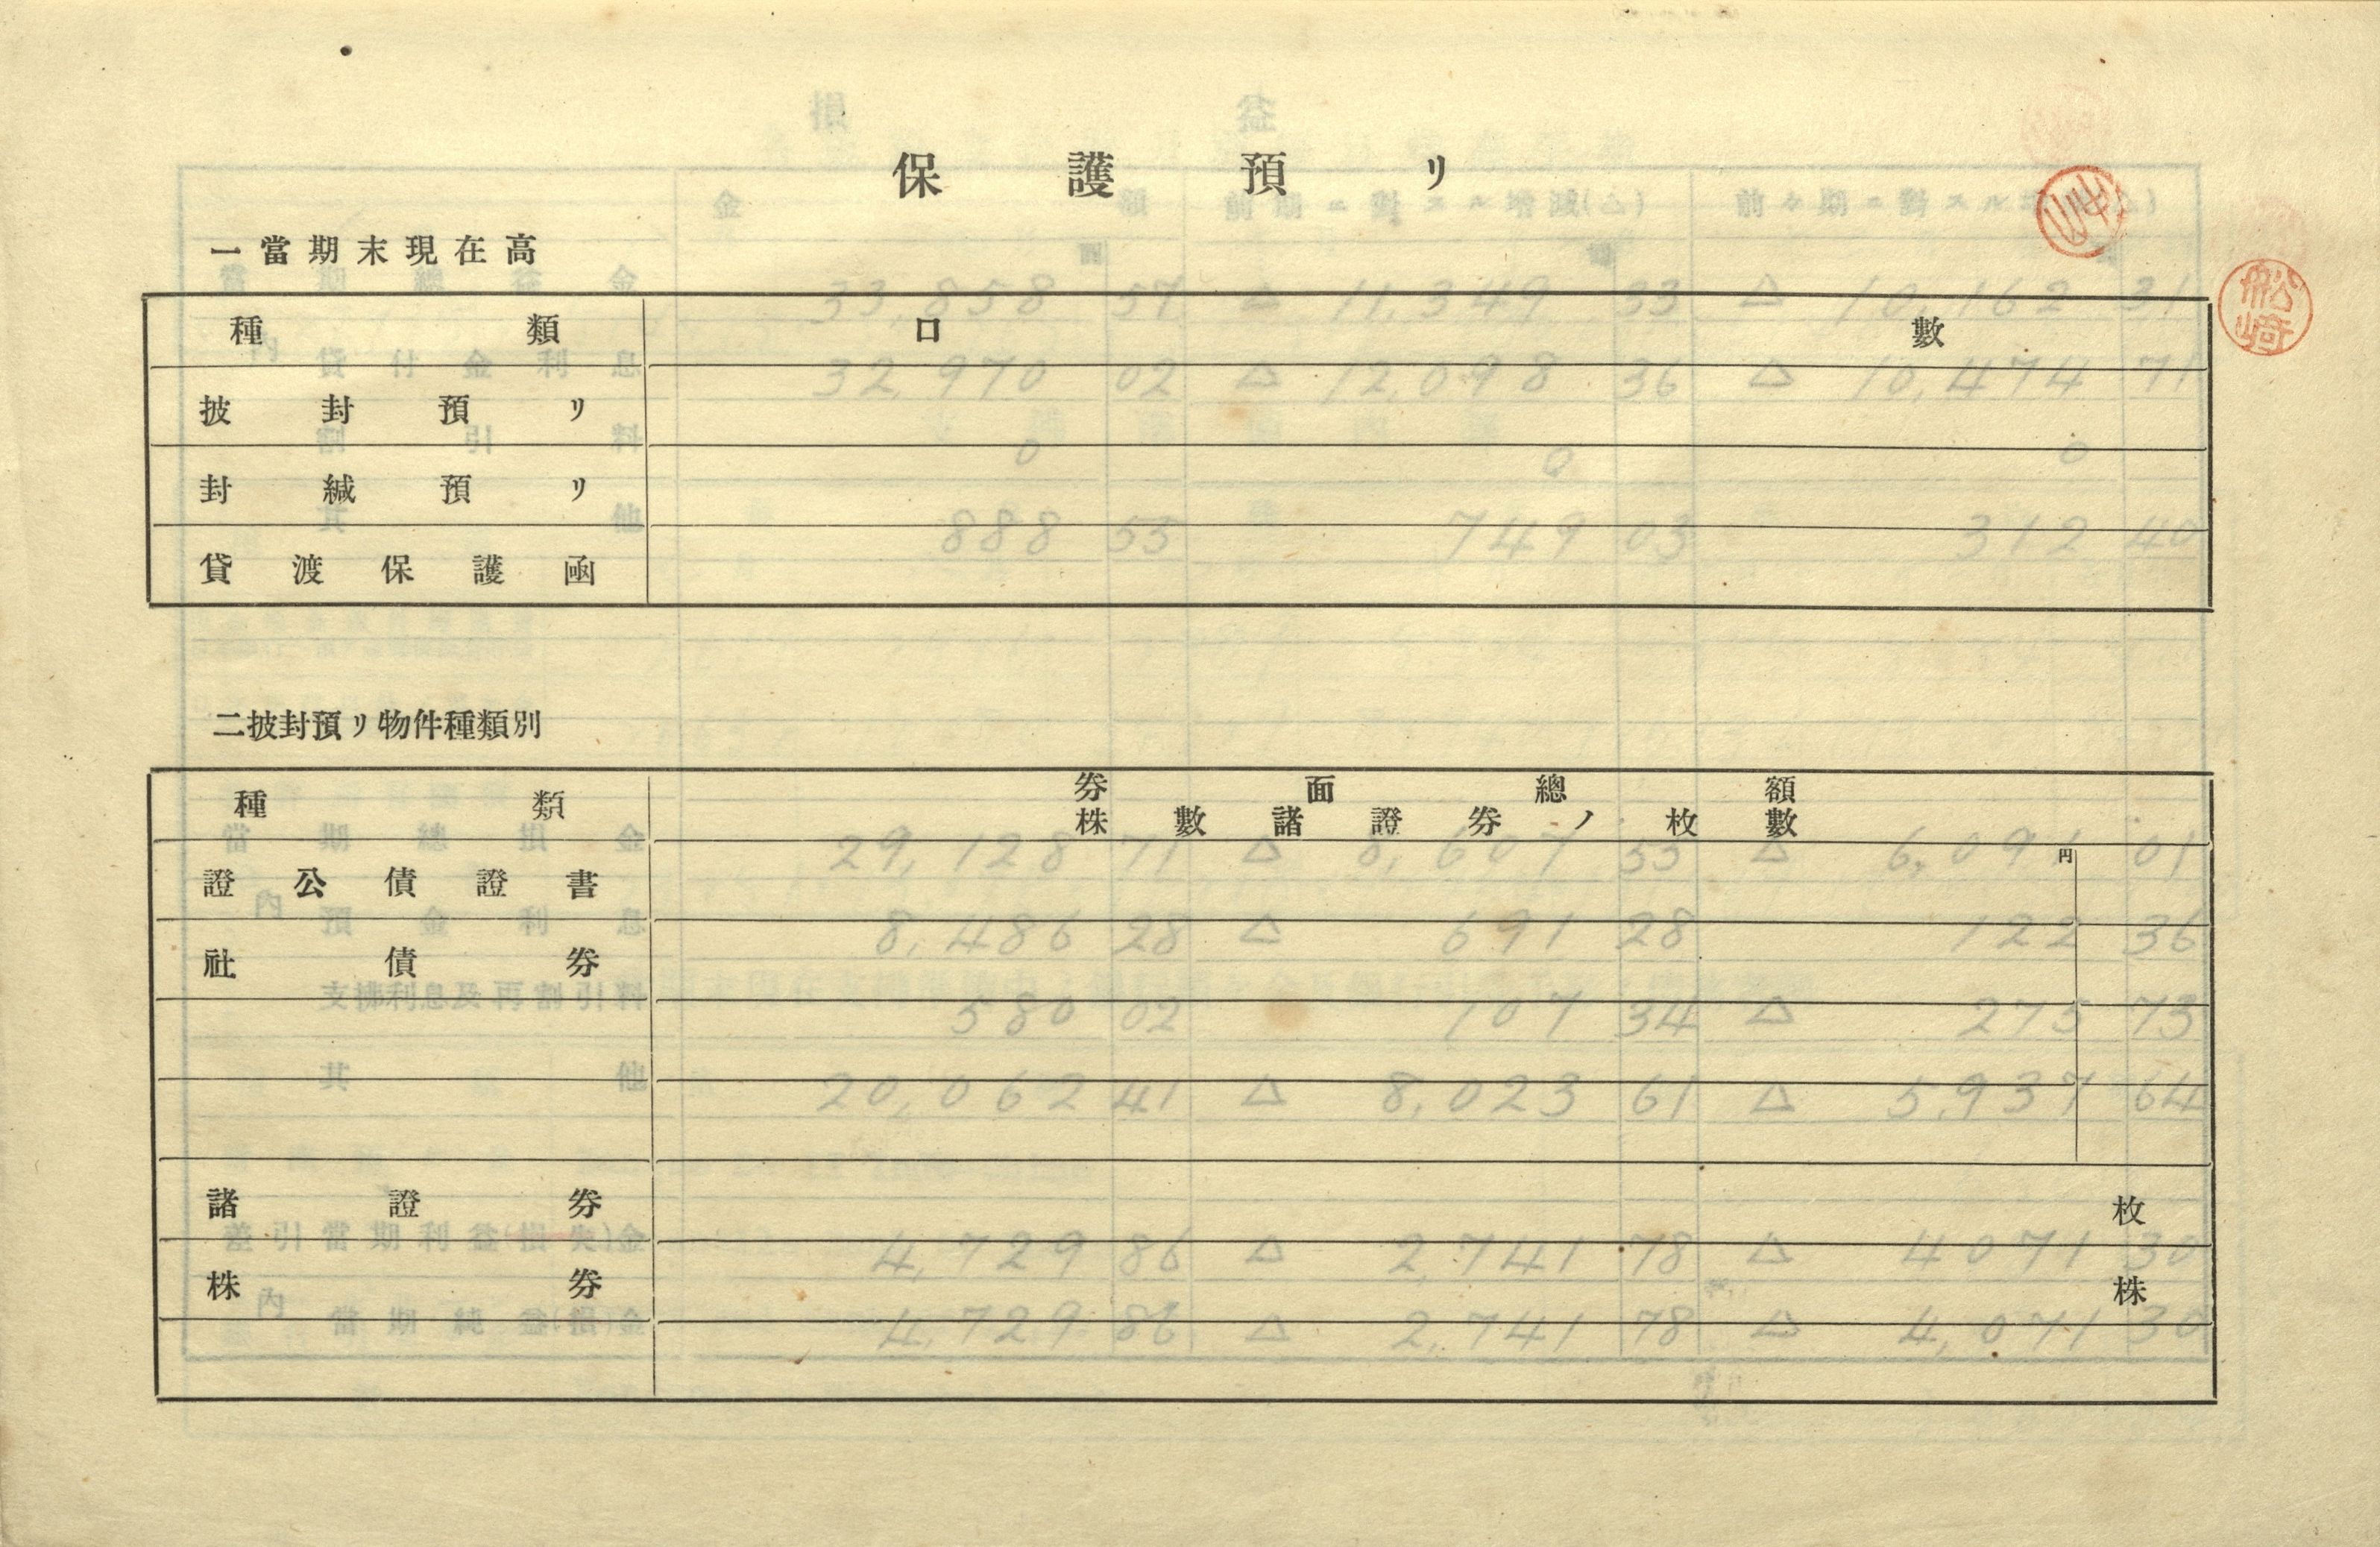 保護預リ
一當期末現在高
種類 口數
披封預リ
封緘預リ
貸渡保護函
二披封預リ物件種類別
種類 券面總額
株數諸證券ノ枚數
證公債證書 円
社債券
諸證券 枚
株券 株
損益
金額 前期ニ對スル增減(△) 前々期ニ對スル增減(△)
當期總益金 33,858 57 △ 11,349 33 △ 10,162 31
內 貸付金利息 32,970 02 △ 12,098 36 △ 10,474 71
割引料 0 0 0
其他 888 55 749 03 312 40
當期總損金 29,128 71 △ 8,607 55 △ 6,091 01
內 預金利息 8,486 28 △ 691 28 122 36
支拂利息及再割引料 580 02 107 34 △ 275 73
其他 20,062 41 △ 8,023 61 △ 5,937 64
差引當期利益(損失)金 4,729 86 △ 2,741 78 △ 4071 30
內 當期純益(損)金 4,729 86 △ 2,741 78 △ 4,071 30